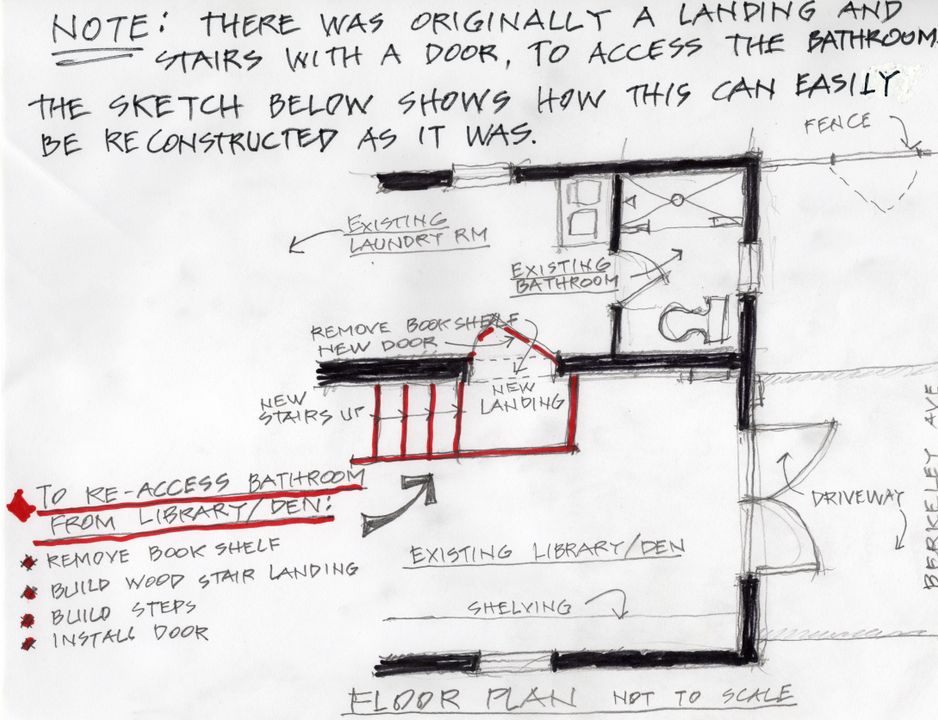 NOTE: THERE WAS ORIGINALLY A LANDING AND
STAIRS WITH A DOOR, TO ACCESS THE BATHROOM.
THE SKETCH BELOW SHOWS HOW THIS CAN EASILY
BE RECONSTRUCTED AS IT WAS.
FENCE
EXISTING
LAUNDRY RM
EXISTING
BATHROOM
REMOVE BOOK SHELF
NEW DOOR
NEW
LANDING
NEW
STAIRS UP
TO RE-ACCESS BATHROOM
FROM LIBRARY/DEN:
REMOVE BOOK SHELF
BUILD WOOD STAIR LANDING
BUILD STEPS
INSTALL DOOR
EXISTING LIBRARY/DEN
SHELVING
DRIVEWAY
BERKELEY AVE
FLOOR PLAN NOT TO SCALE